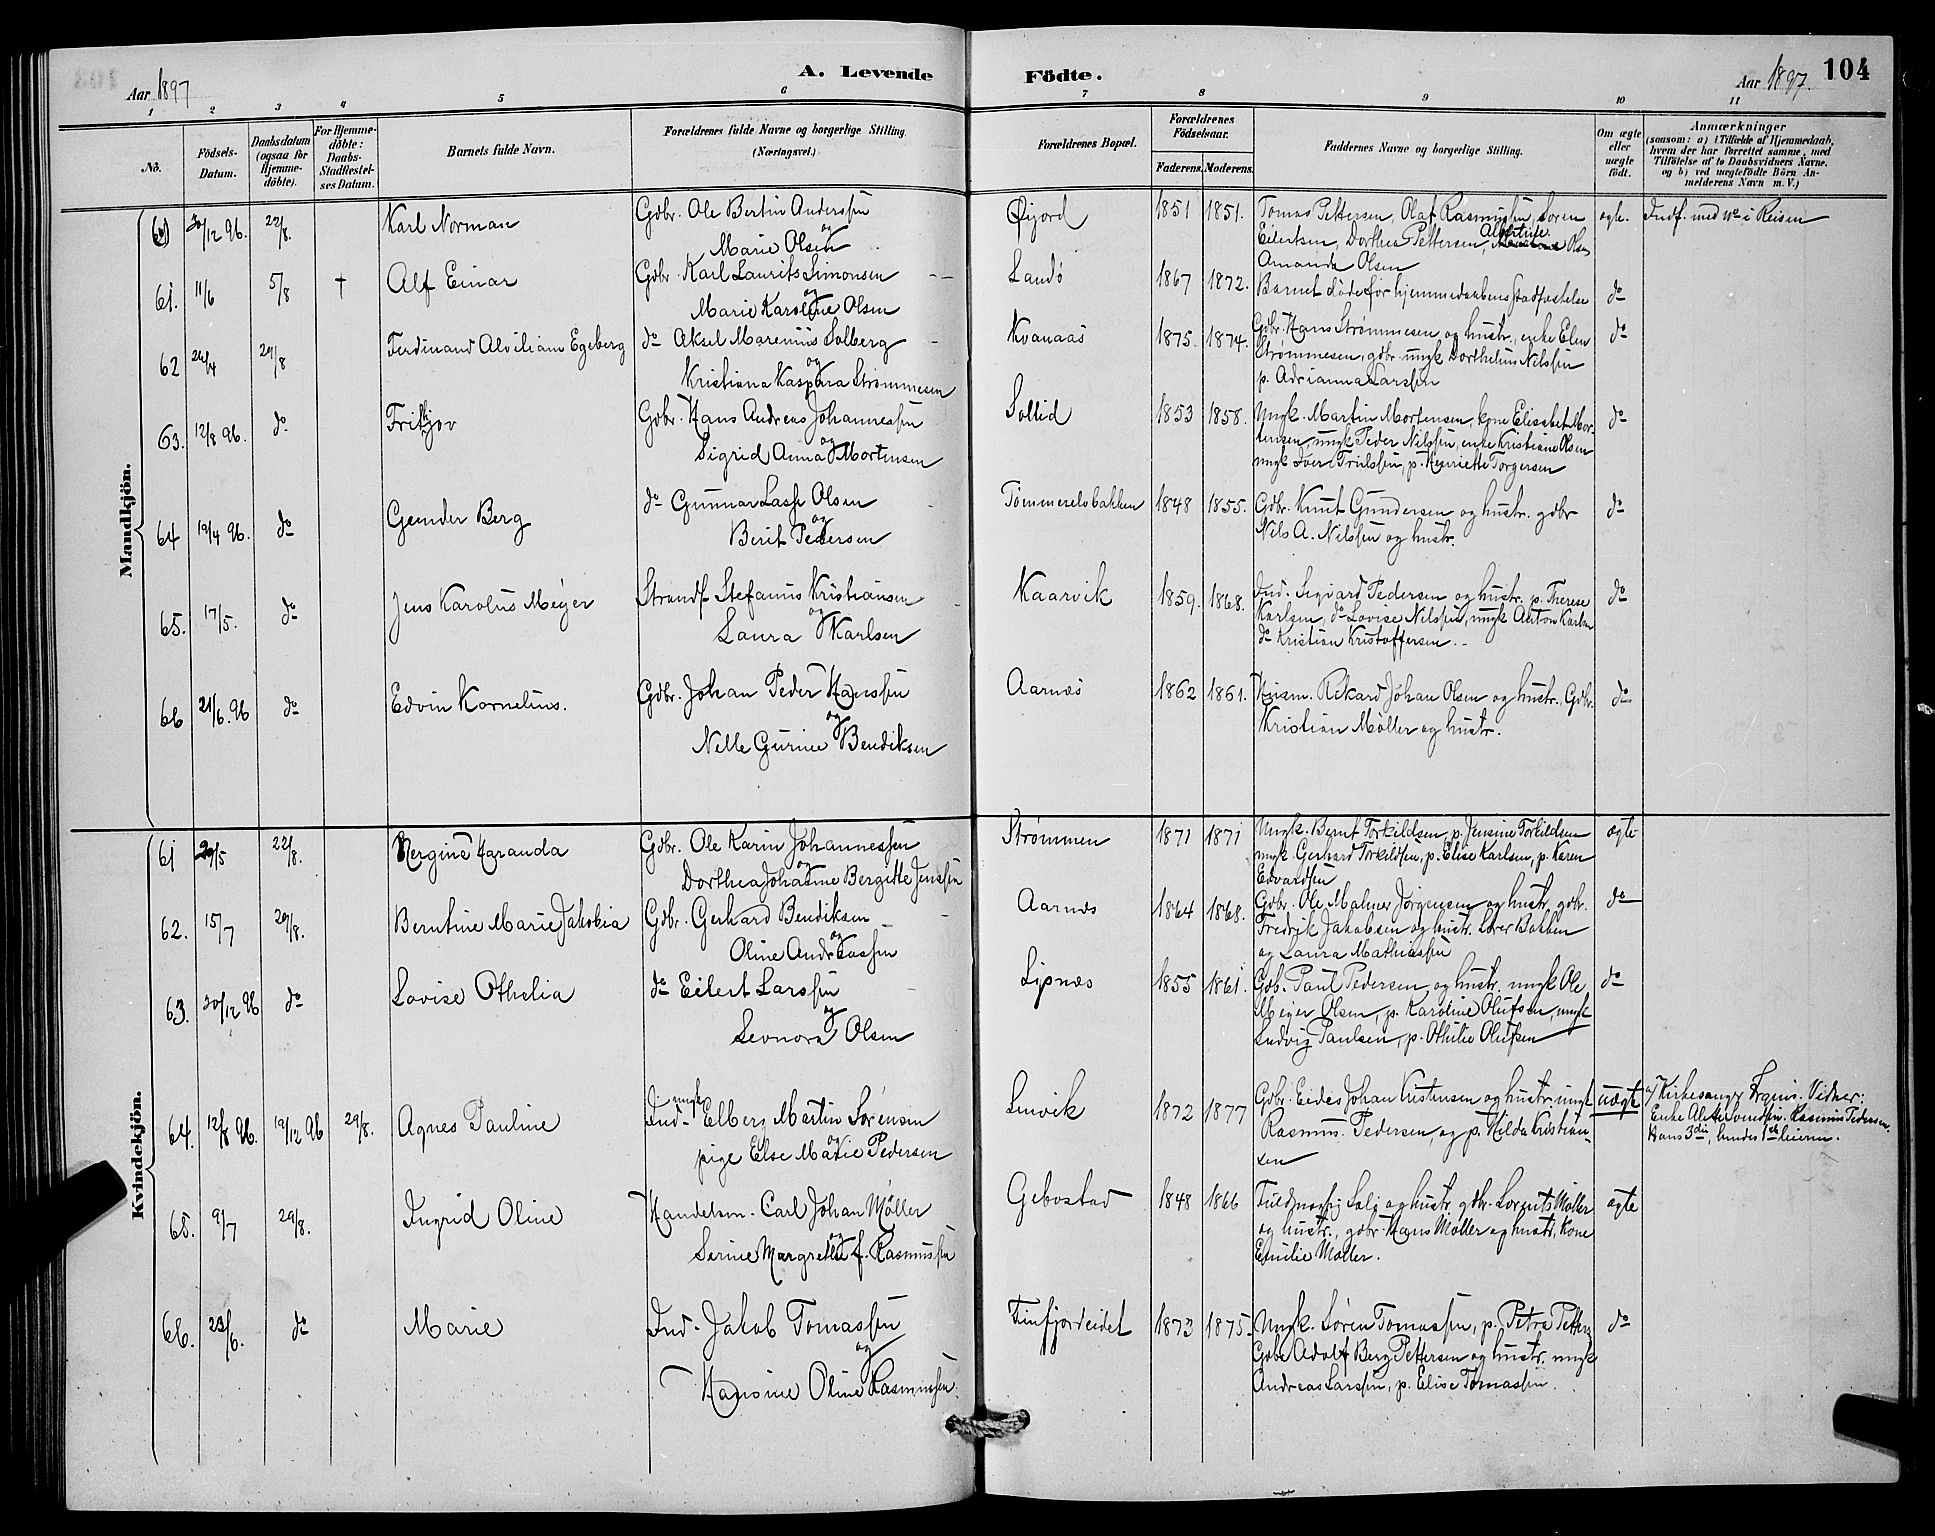 Aar 1897
A. Levende
Födte.
Aar 1897.
104
1 2 3 4 5 6 7 8 9 10 11
No.
Födsels-Datum.
Daabsdatum (ogsaa for Hjemme-döbte).
For Hjemme-döbte: Daabs-Stadfæstel-ses Datum.
Barnets fulde Navn.
Forældrenes fulde Navne og borgerlige Stilling.
(Næringsvei.)
Forældrenes Bopæl.
Forældrenes Födselsaar.
Faderens. Moderens.
Faddernes Navne og borgerlige Stilling.
Om ægte eller uægte födt.
Anmærkninger
(saasom: a) i Tilfælde af Hjemmedaab,
hvem der har forrettet samme, med
Tilföielse af to Daabsvidners Navne,
og b) ved uægtefödte Börn An-
melderens Navn m. V.)
Mandkjön.
60 30/12 96. 22/8. Karl Norman
Gdbr. Ole Bertin Anderssen
og
Marie Olsen
Øijord 1851 1851.
Tomas Pettersen, Olaf Rasmussen, Soren
Eilertsen, Dorthea Pettersen, Albertine Olsen
Amanda Olsen
ægte. Indf. med No i Reisen
61. 11/6 5/8 † Alf Einar
Gdbr. Karl Laurits Simonsen
og
Marie Karoline Olsen
Sandö 1867 1872.
Barnet döde för hjemmedaabens stadfæstelse
do
62 24/4 29/8 Ferdinand Alvilian Egeberg
do Aksel Marenius Solberg
og
Kristiana Kaspara Strømmesen
Kvanaas 1875. 1874.
Gdbr. Hans Strømmesen og hustr., enke Elen
Strømmesen, gdbr. ungk Dorthelius Nilssen
p. Adrianna Larssen
do
63. 12/8 96. do Frithjov
Gdbr. Hans Andreas Johannessen
og
Sigrid Anna Mortensen
Sollid 1853 1858.
Ungk. Martin Mortensen, kone Elisabet Mor-
tensen, ungk Peder Nilssen, enke Kristiane Olsen
ungk Iver Trulssen, p. Henriette Torgersen
do
64 19/4 96. do Gunder Berg
do Gunnar Lasse Olsen
og
Berit Pedersen
Tømmerelvbakken 1848 1855.
Gdbr. Knut Gundersen og hustr. gdbr
Nils A. Nilssen og hustr.
do
65. 17/5. do Jens Karolus Meyer
Strands. Stefanus Kristiansen
og
Laura Karlsen
Kaarvik 1859. 1868.
Ind. Sigvard Pedersen og hustr. p. Therese
Karlsen, do Lovise Nilssen, ungk Anton Karlsen
do Kristian Kristoffersen.
do
66 21/6. 96 do Edvin Kornelius.
Gdbr. Johan Peder Hanssen
og
Nelle Gurine Bendiksen
Aarnes 1862 1861.
Husm. Rikard Johan Olsen og hustr. Gdbr.
Kristian Møller og hustr.
do
Kvindekjön.
61 29/5 22/8. Nergine Haranda
Gdbr. Ole Karin Johannessen
og
Dorthea Johanne Bergitte Jenssen
Strømmen 1871 1871
Ungk. Bernt Torkildsen, p. Jensine Torkildsen
ungk. Gerhard Torkildsen, p. Elise Karlsen, p. Karen
Edvardsen
ægte
62. 15/7 29/8. Berntine Marie Jakobia
Gdbr. Gerhard Bendiksen
og
Oline Andreassen
Aarnes 1864 1868.
Gdbr. Ole Malmer Jørgensen og hustr. gdbr.
Fredrik Jakobsen og hustr. Lærer Bakken
og Laura Mathiassen
do
63. 20/12 96 do Lovise Othelia
do Eilert Larssen
og
Leonora Olsen
Lysnes 1855 1861.
Gdb. Paul Pedersen og hustr. ungk Ole
Meier Olsen, p. Karoline Olufsen, ungk
Ludvig Paulsen, p. Othilie Olufsen
do
64. 12/8 96. 19/12 96 29/8. Agnes Pauline
ungk
Ind. Elberg Martin Sørensen
og
pige Else Marie Pedersen
Lenvik 1872 1877
Gdbr. Eides Johan Kristensen og hustr. ungk
Rasmus Pedersen, og p. Hilda Kristian-
sen
uægt
a/ Kirkesanger Vidner:
Enke Rasmus Pedersen.
Hans 3die, hendes 1ste leierm.
65. 9/7 29/8. Ingrid Oline
Handelsm. Carl Johan Møller
og
Serine Margrethe f. Rasmussen
Gebostad 1848 1866
Fuldmægtig Salg og hustr. gdbr. Lorents Møller
og hustr., gdbr. Hans Møller og hustr. Kone
Emilie Møller.
ægte
66. 23/6. do Marie
Ind. Jakob Tomassen
og
Hansine Oline Rasmussen.
Finfjordeidet 1873 1875.
Ungk. Søren Tomassen, p. Petra Petters
Gdbr Adolf Berg Pettersen og hustr. ungk
Andreas Larssen, p. Elise Tomassen.
do